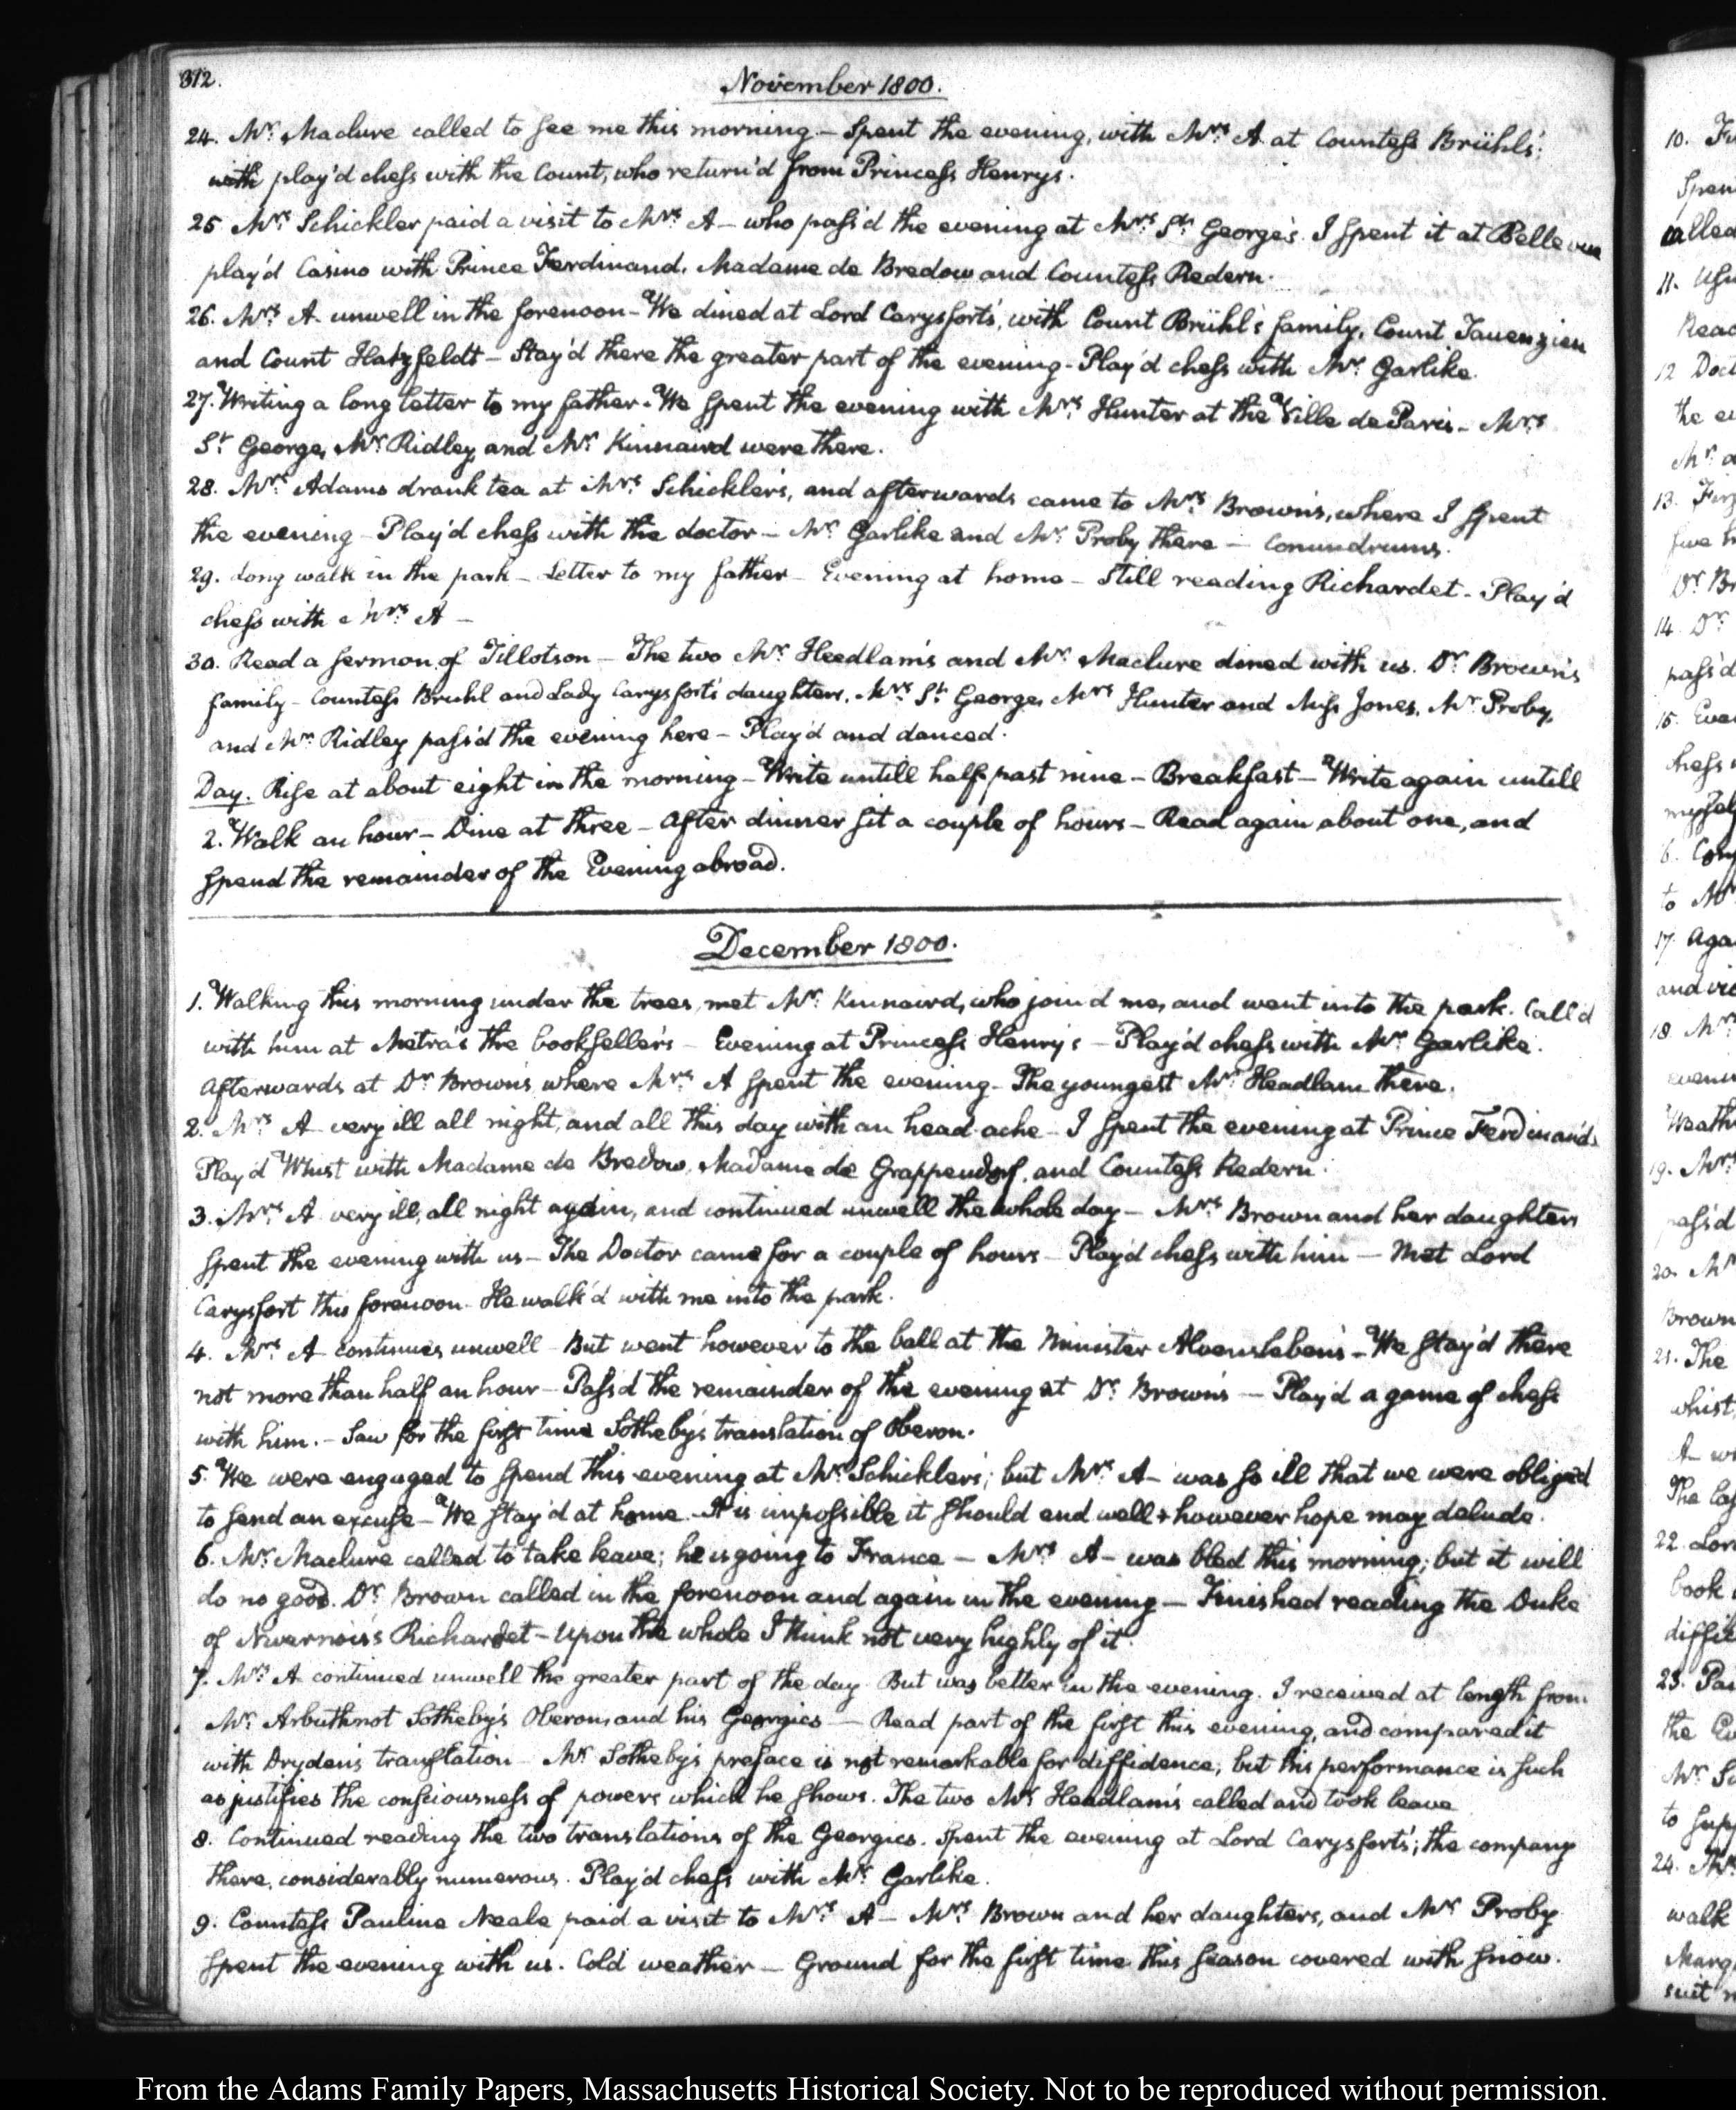 312.
November 1800.
24. Mr. Maclure called to see me this morning — Spent the evening, with Mrs. A. at Countess Brühl's;
with play'd chess with the Count, who return'd from Princess Henry's.
25. Mrs. Schickler paid a visit to Mrs. A — who pass'd the evening at Mrs. St. George's. I spent it at Bellevue
play'd Casino with Prince Ferdinand, Madame de Bredow and Countess Redern.
26. Mrs. A. unwell in the forenoon — We dined at Lord Carysfort's, with Count Brühl's family, Count Tauenzien
and Count Hatzfeldt — Stay'd there the greater part of the evening — Play'd chess with Mr. Garlike.
27. Writing a long letter to my father. We spent the evening with Mrs. Hunter at the Ville de Paris — Mrs.
St. George, Mr. Ridley, and Mr. Kinnaird were there.
28. Mrs. Adams drank tea at Mrs. Schickler's, and afterwards came to Mrs. Brown's, where I spent
the evening — Play'd chess with the doctor — Mr. Garlike and Mr. Proby there — Conundrums.
29. Long walk in the park — Letter to my father — Evening at home — Still reading Richardet — Play'd
chess with Mrs. A —
30. Read a sermon of Tillotson — The two Mr. Headlam's and Mr. Maclure dined with us. Dr. Brown's
family — Countess Bruhl and Lady Carysfort's daughters, Mrs. St. George, Mrs. Hunter and Miss Jones, Mr. Proby,
and Mr. Ridley pass'd the evening here — Play'd and danced.
Day. Rise at about eight in the morning — Write untill half past nine — Breakfast — Write again untill
2. Walk an hour — Dine at three — After dinner sit a couple of hours — Read again about one, and
spend the remainder of the Evening abroad.
December 1800.
1. Walking this morning under the trees, met Mr. Kinnaird, who join'd me, and went into the park. Call'd
with him at Metra's the bookseller's — Evening at Princess Henry's — Play'd chess with Mr. Garlike.
Afterwards at Dr. Brown's, where Mrs. A spent the evening — The youngest Mr. Headlam there.
2. Mrs. A very ill all night, and all this day with an head-ache — I spent the evening at Prince Ferdinand's
Play'd Whist with Madame de Bredow, Madame de Grappendorf, and Countess Redern.
3. Mrs. A. very ill, all night again, and continued unwell the whole day — Mrs. Brown and her daughters
spent the evening with us — The Doctor came for a couple of hours — Play'd chess with him — Met Lord
Carysfort this forenoon. He walk'd with me into the park.
4. Mrs. A continues unwell — But went however to the ball at the Minister Alvensleben's — We stay'd there
not more than half an hour — Pass'd the remainder of the evening at Dr. Brown's — Play'd a game of chess
with him. — Saw for the first time Sotheby's translation of Oberon.
5. We were engaged to spend this evening at Mr. Schickler's; but Mrs. A — was so ill that we were obliged
to send an excuse — We stay'd at home. It is impossible it should end well, however hope may delude.
6. Mr. Maclure called to take leave; he is going to France — Mrs. A — was bled this morning; but it will
do no good. Dr. Brown called in the forenoon and again in the evening — Finished reading the Duke
of Nivernois's Richardet — Upon the whole I think not very highly of it.
7. Mrs. A continued unwell the greater part of the day. But was better in the evening. I received at length from
Mr. Arbuthnot Sotheby's Oberon, and his Georgics — Read part of the first this evening, and compared it
with Dryden's translation — Mr. Sotheby's preface is not remarkable for diffidence; but his performance is such
as justifies the consciousness of powers which he shows. The two Mr. Headlam's called and took leave.
8. Continued reading the two translations of the Georgics. Spent the evening at Lord Carysfort's; the company
there, considerably numerous. Play'd chess with Mr. Garlike.
9. Countess Pauline Neale paid a visit to Mrs. A — Mrs. Brown and her daughters, and Mr. Proby
spent the evening with us. Cold weather — Ground for the first time this season covered with snow.
From the Adams Family Papers, Massachusetts Historical Society. Not to be reproduced without permission.